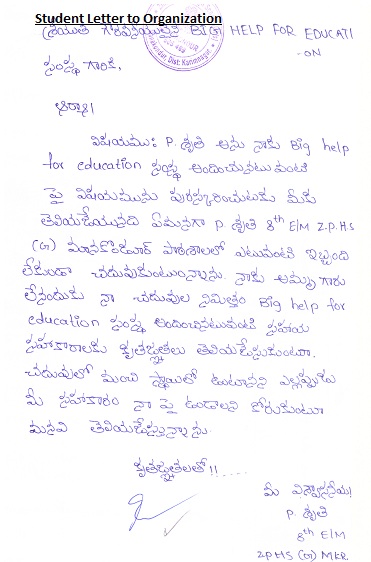 Student Letter to Organization
శ్రీయుత గౌరవనీయులైన BIG HELP FOR EDUCATI
-ON
సంస్థ గారికి,
ఆర్యా!
విషయము: P. శృతి అను నాకు Big help
for education సంస్థ అందించునటువంటి
పై విషయమును పురస్కరించుటకు మీకు
తెలియజేయునది ఏమనగా P. శృతి 8th E/M Z.P.H.S
(G) మానకొండూర్ పాఠశాలలో ఎటువంటి ఇబ్బంది
లేకుండా చదువుకుంటున్నాను. నాకు అమ్మగారు
లేనందుకు నా చదువుల నిమిత్తం Big help for
education సంస్థ అందించినటువంటి సహాయ
సహకారాలకు కృతజ్ఞతలు తెలియజేసుకుంటూ,
చదువులో మంచి స్థాయిలో ఉంటానని ఎల్లప్పుడు
మీ సహకారం నా పై ఉండాలని కోరుకుంటూ
మనవి తెలియజేస్తున్నాను.
కృతజ్ఞతలతో!!
మీ విశ్వాసనీయు
P. శృతి
8th E/M
Z.P.H.S (G) MKR.